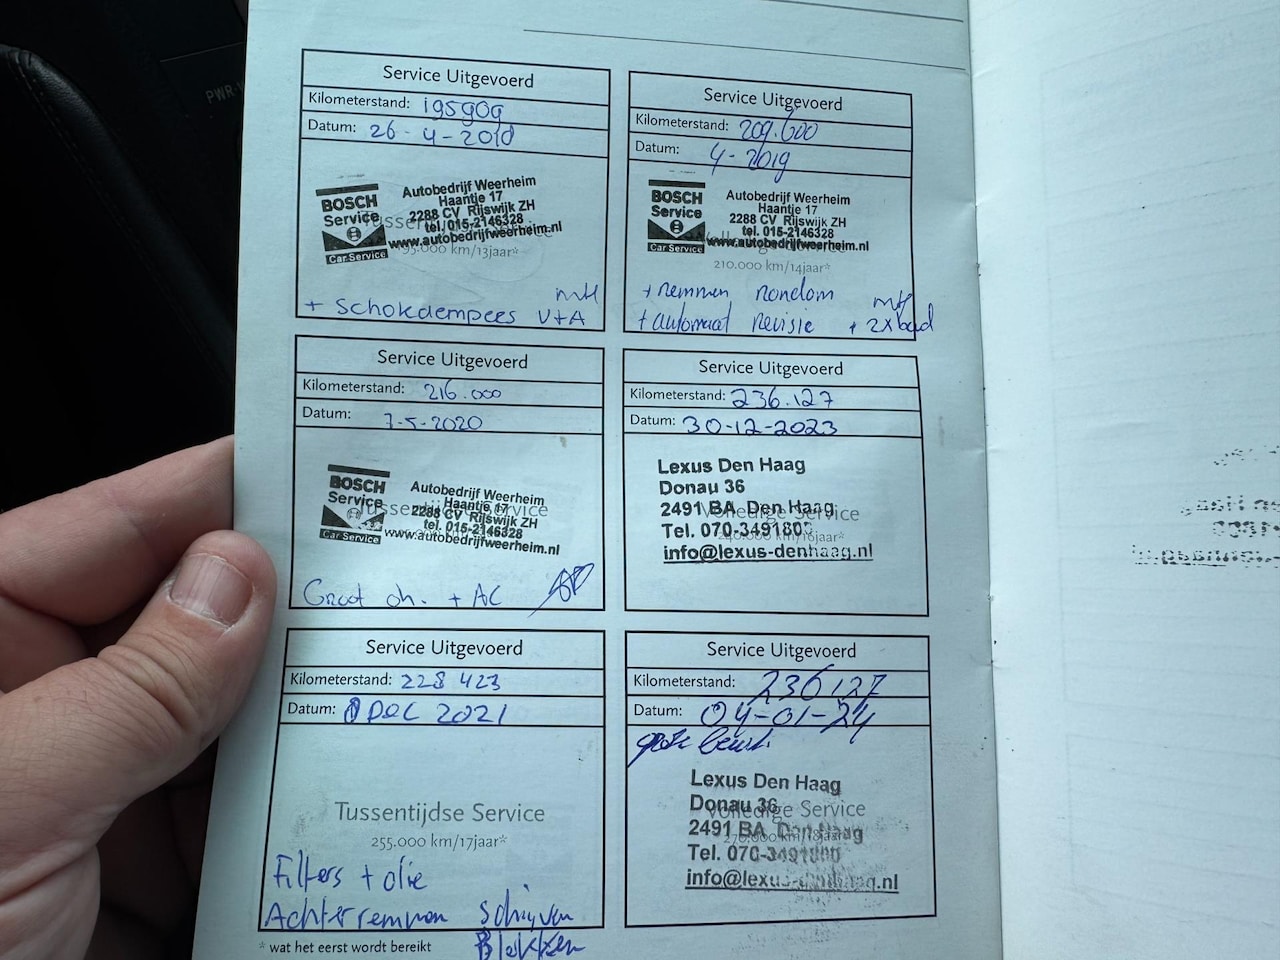 PWR
Service Uitgevoerd
Kilometerstand: 195909
Datum: 26-4-2018
BOSCH
Service
Car Service
Autobedrijf Weerheim
Haantje 17
2288 CV Rijswijk ZH
tel. 015-2146328
www.autobedrijfweerheim.nl
km/13jaar*
mH
+ Schokdempees V+A
Service Uitgevoerd
Kilometerstand: 209.600
Datum: 4-2019
BOSCH
Service
Car Service
Autobedrijf Weerheim
Haantje 17
2288 CV Rijswijk ZH
tel. 015-2146328
www.autobedrijfweerheim.nl
210.000 km/14jaar*
+ remmen rondom mH
+ automaat Revisie + 2x band
Service Uitgevoerd
Kilometerstand: 216.000
Datum: 7-5-2020
BOSCH
Service
Car Service
Tussentijdse Service
Autobedrijf Weerheim
Haantje 17
2288 CV Rijswijk ZH
tel. 015-2146328
www.autobedrijfweerheim.nl
Groot oh. + AC
Service Uitgevoerd
Kilometerstand: 236.127
Datum: 30-12-2023
Lexus Den Haag
Donau 36
2491 BA Den Haag
Volledige Service
Tel. 070-3491800
240.000 km/16jaar*
info@lexus-denhaag.nl
Service Uitgevoerd
Kilometerstand: 228 423
Datum: Dec 2021
Tussentijdse Service
255.000 km/17jaar*
Filters + olie
Achterremmen Schijven
Blokken
* wat het eerst wordt bereikt
Service Uitgevoerd
Kilometerstand: 236127
Datum: 04-01-24
grote beurt.
Lexus Den Haag
Donau 36
Volledige Service
2491 BA Den Haag
270.000 km/18jaar*
Tel. 070-3491800
info@lexus-denhaag.nl